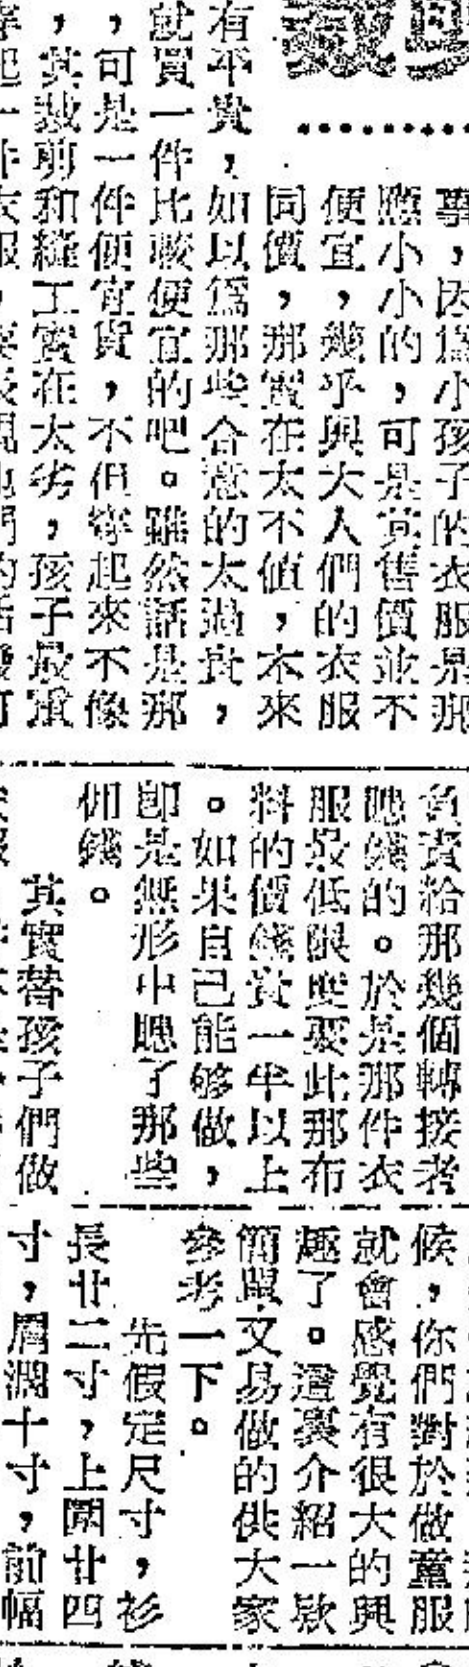 事，因爲小孩子的衣服是那
麽小小的，可是其售價並不
便宜，幾乎與大人們的衣服
同價，那實在太不值，本來
有平貴，如以爲那些合意的太過貴，
就買一件比較便宜的吧。雖然話是那
，可是一件便宜貨，不但穿起來不像
，其裁剪和縫工實在太劣，孩子最頑
資給那幾個轉接者
賺錢的。於是那件衣
服最低限度要比那布
料的價錢貴一半以上
。如果自己能够做，
卽是無形中賺了那些
佣錢。
其實替孩子們做
候，你們對於做童服
就會感覺有很大的興
趣了。這裏介紹一款
簡單又易做的供大家
參考一下。
先假定尺寸，衫
長廿二寸，上闊廿四
寸，膊濶十寸，前幅